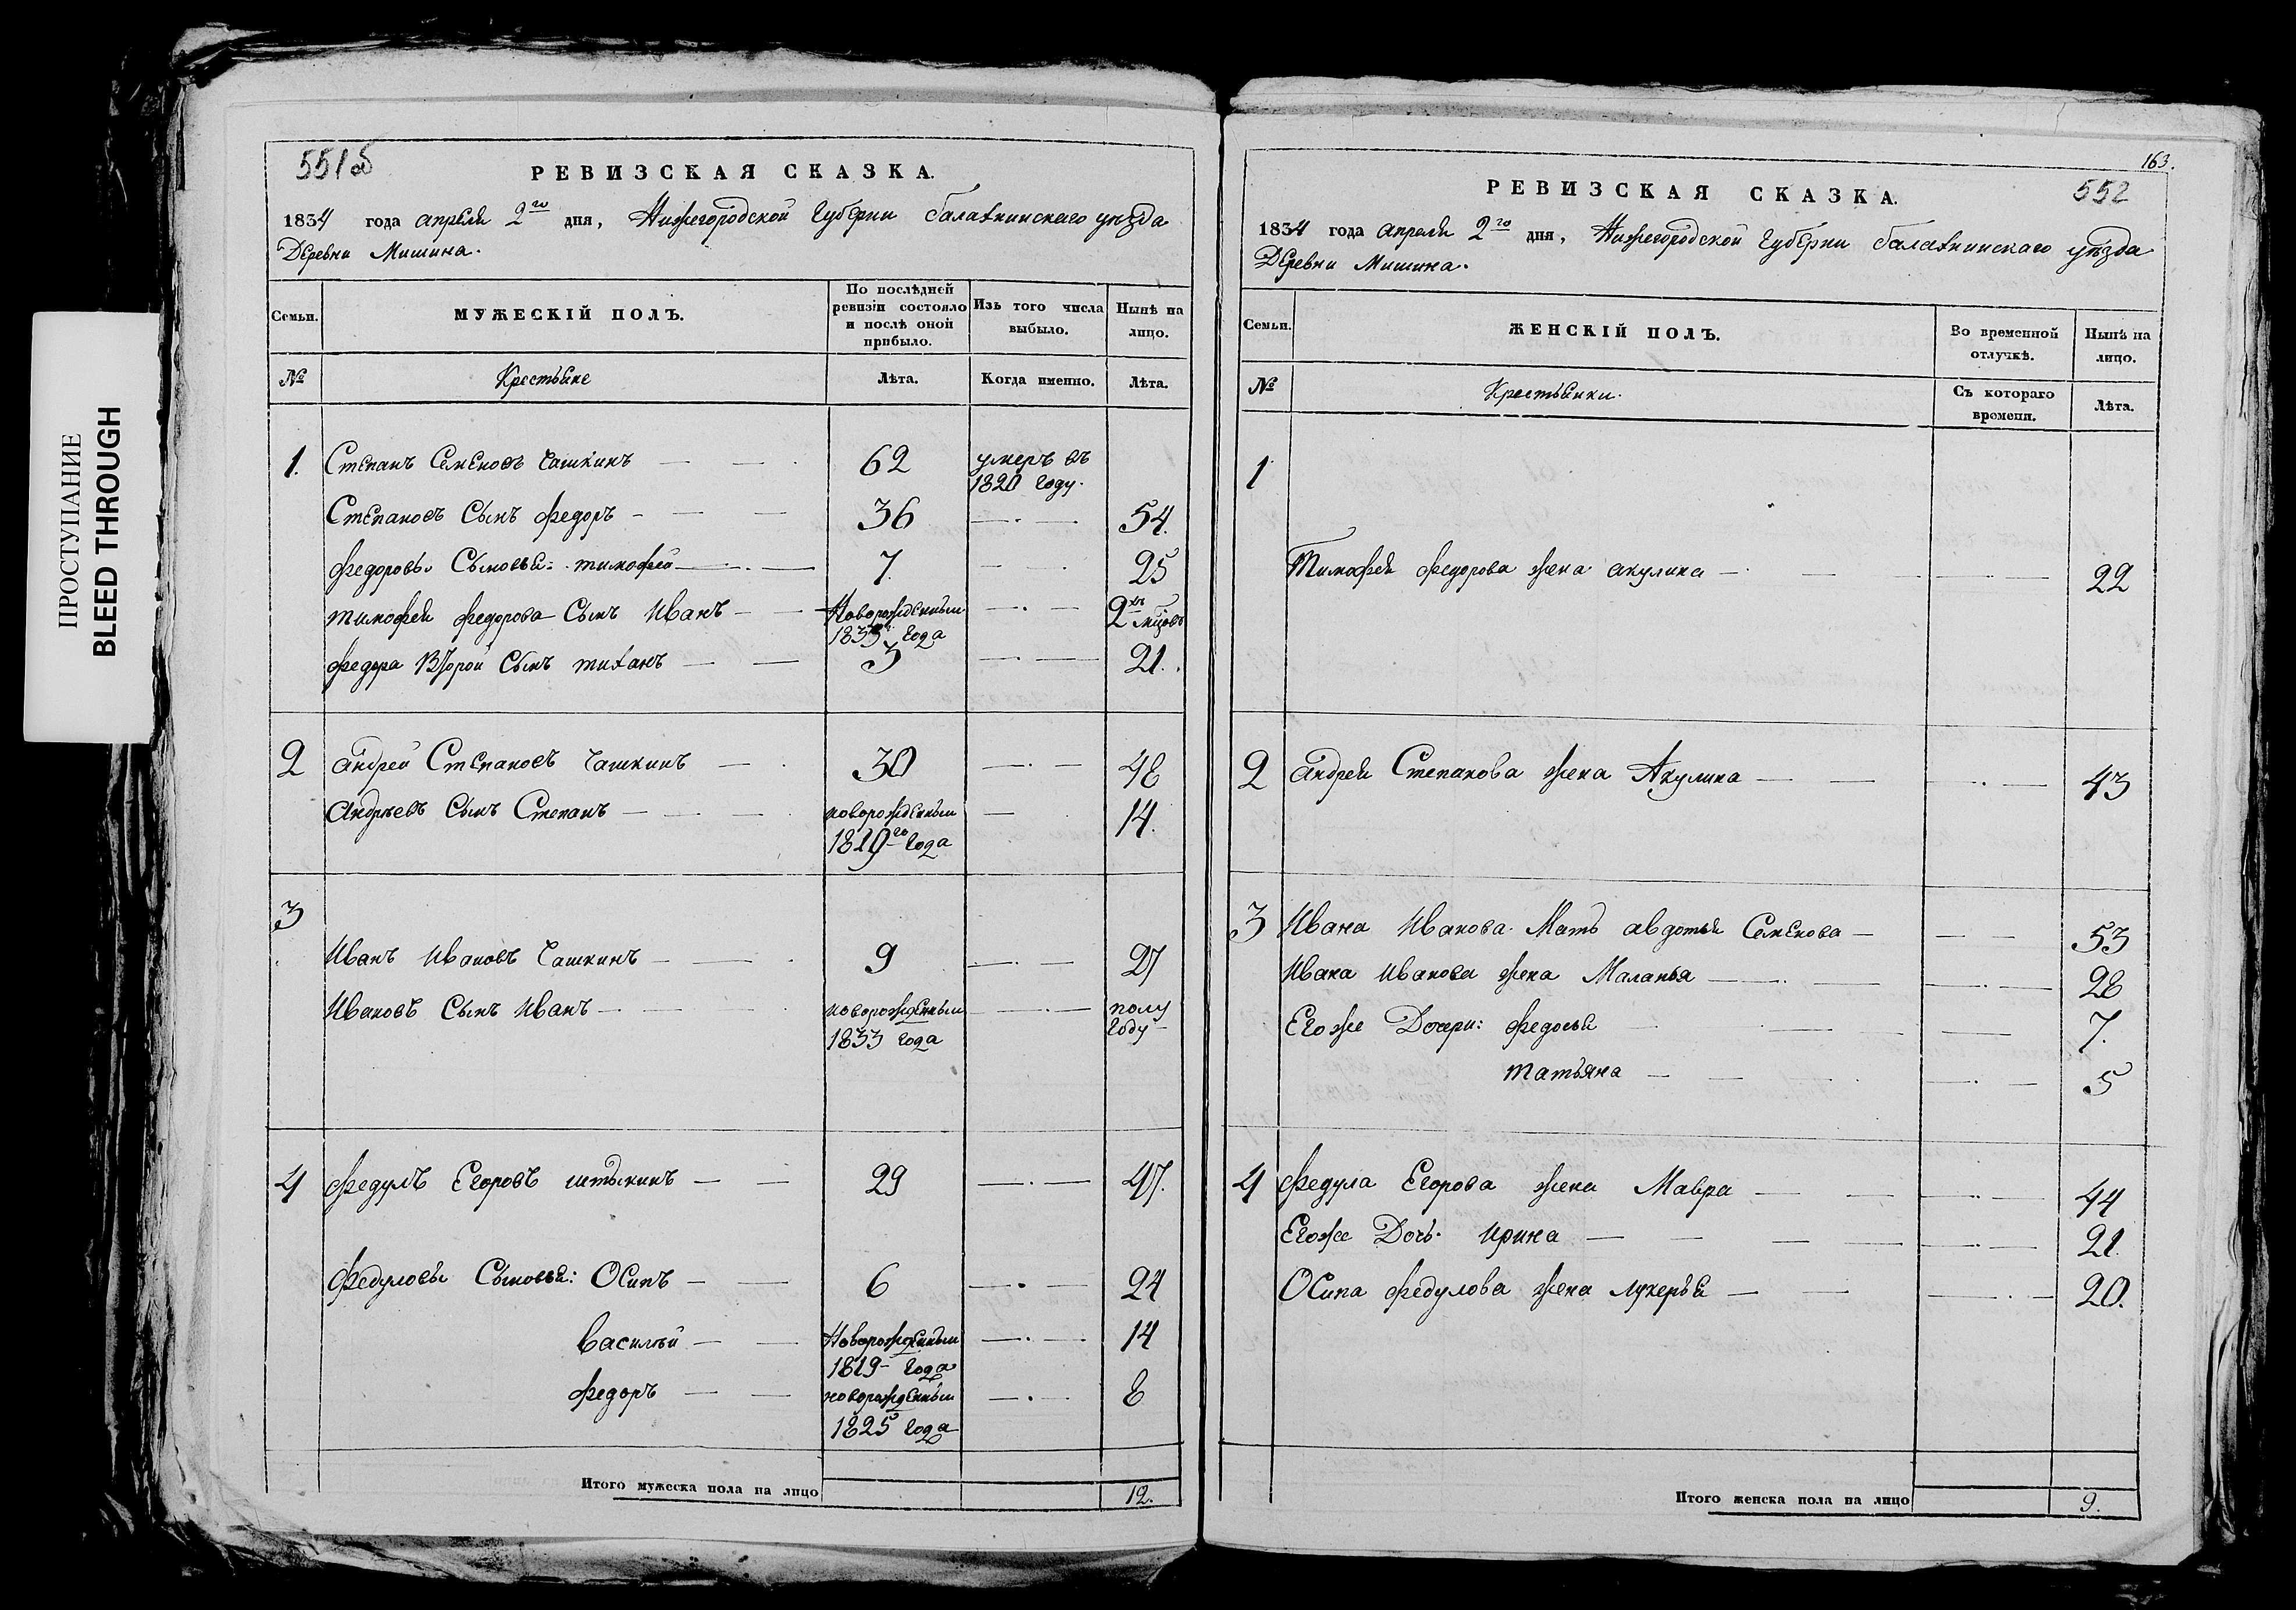 ПРОСТУПАНИЕ
BLEED THROUGH
551об
РЕВИЗСКАЯ СКАЗКА.
1834 года апреля 2го дня, Нижегородской Губернии балахнинскаго уѣзда
Деревни Мишина.
Семьи.
МУЖЕСКІЙ ПОЛЪ.
По послѣдней ревизіи состояло и послѣ оной прибыло.
Изъ того числа выбыло.
Нынѣ на лицо.
№
Крестьяне
Лѣта.
Когда именно.
Лѣта.
1. Степанъ Семеновъ Чашкинъ — — 62 умеръ въ
1820 году.
Степановъ Сынъ федоръ — — — 36 54.
федоровы Сыновья: тимофей 7. 25
тимофея федорова Сынъ Иванъ — — Новорожденный 2хъ мцовъ
1833 года
федора Второй Сынъ тиханъ — — 3 21.
2 андрей Степановъ Чашкинъ — 30 48
Андреевъ Сынъ Степанъ — новорожденный 14.
1819го года
3
Иванъ Ивановъ Чашкинъ — 9 27
Ивановъ Сынъ Иванъ — новорожденный полу
1833 года году
4 федулъ Егоровъ 29 47.
федуловы Сыновья: Осипъ — — 6 24
василий — — Новорожденный 14
1819 года
федоръ — — новорожденный 8
1825 года
Итого мужеска пола на лицо 12.
163.
552
РЕВИЗСКАЯ СКАЗКА.
1834 года апреля 2го дня, Нижегородской Губернии балахнинскаго уѣзда
Деревни Мишина.
Семьи.
ЖЕНСКІЙ ПОЛЪ.
Во временной отлучкѣ.
Нынѣ на лицо.
№
Крестьянки.
Съ котораго времени.
Лѣта.
1
Тимофея федорова жена акулина — 22
2 андрея Степанова жена Акулина — — 43
3 Ивана Иванова Мать авдотья Семенова — 53
Ивана Иванова жена Маланья — 28
Егоже Дочери: федосья 7.
татьяна — — 5
4 федула Егорова жена Мавра — — 44
Егоже Дочь. ирина — — 21.
Осипа федулова жена лукерья — — 20.
Итого женска пола на лицо 9.